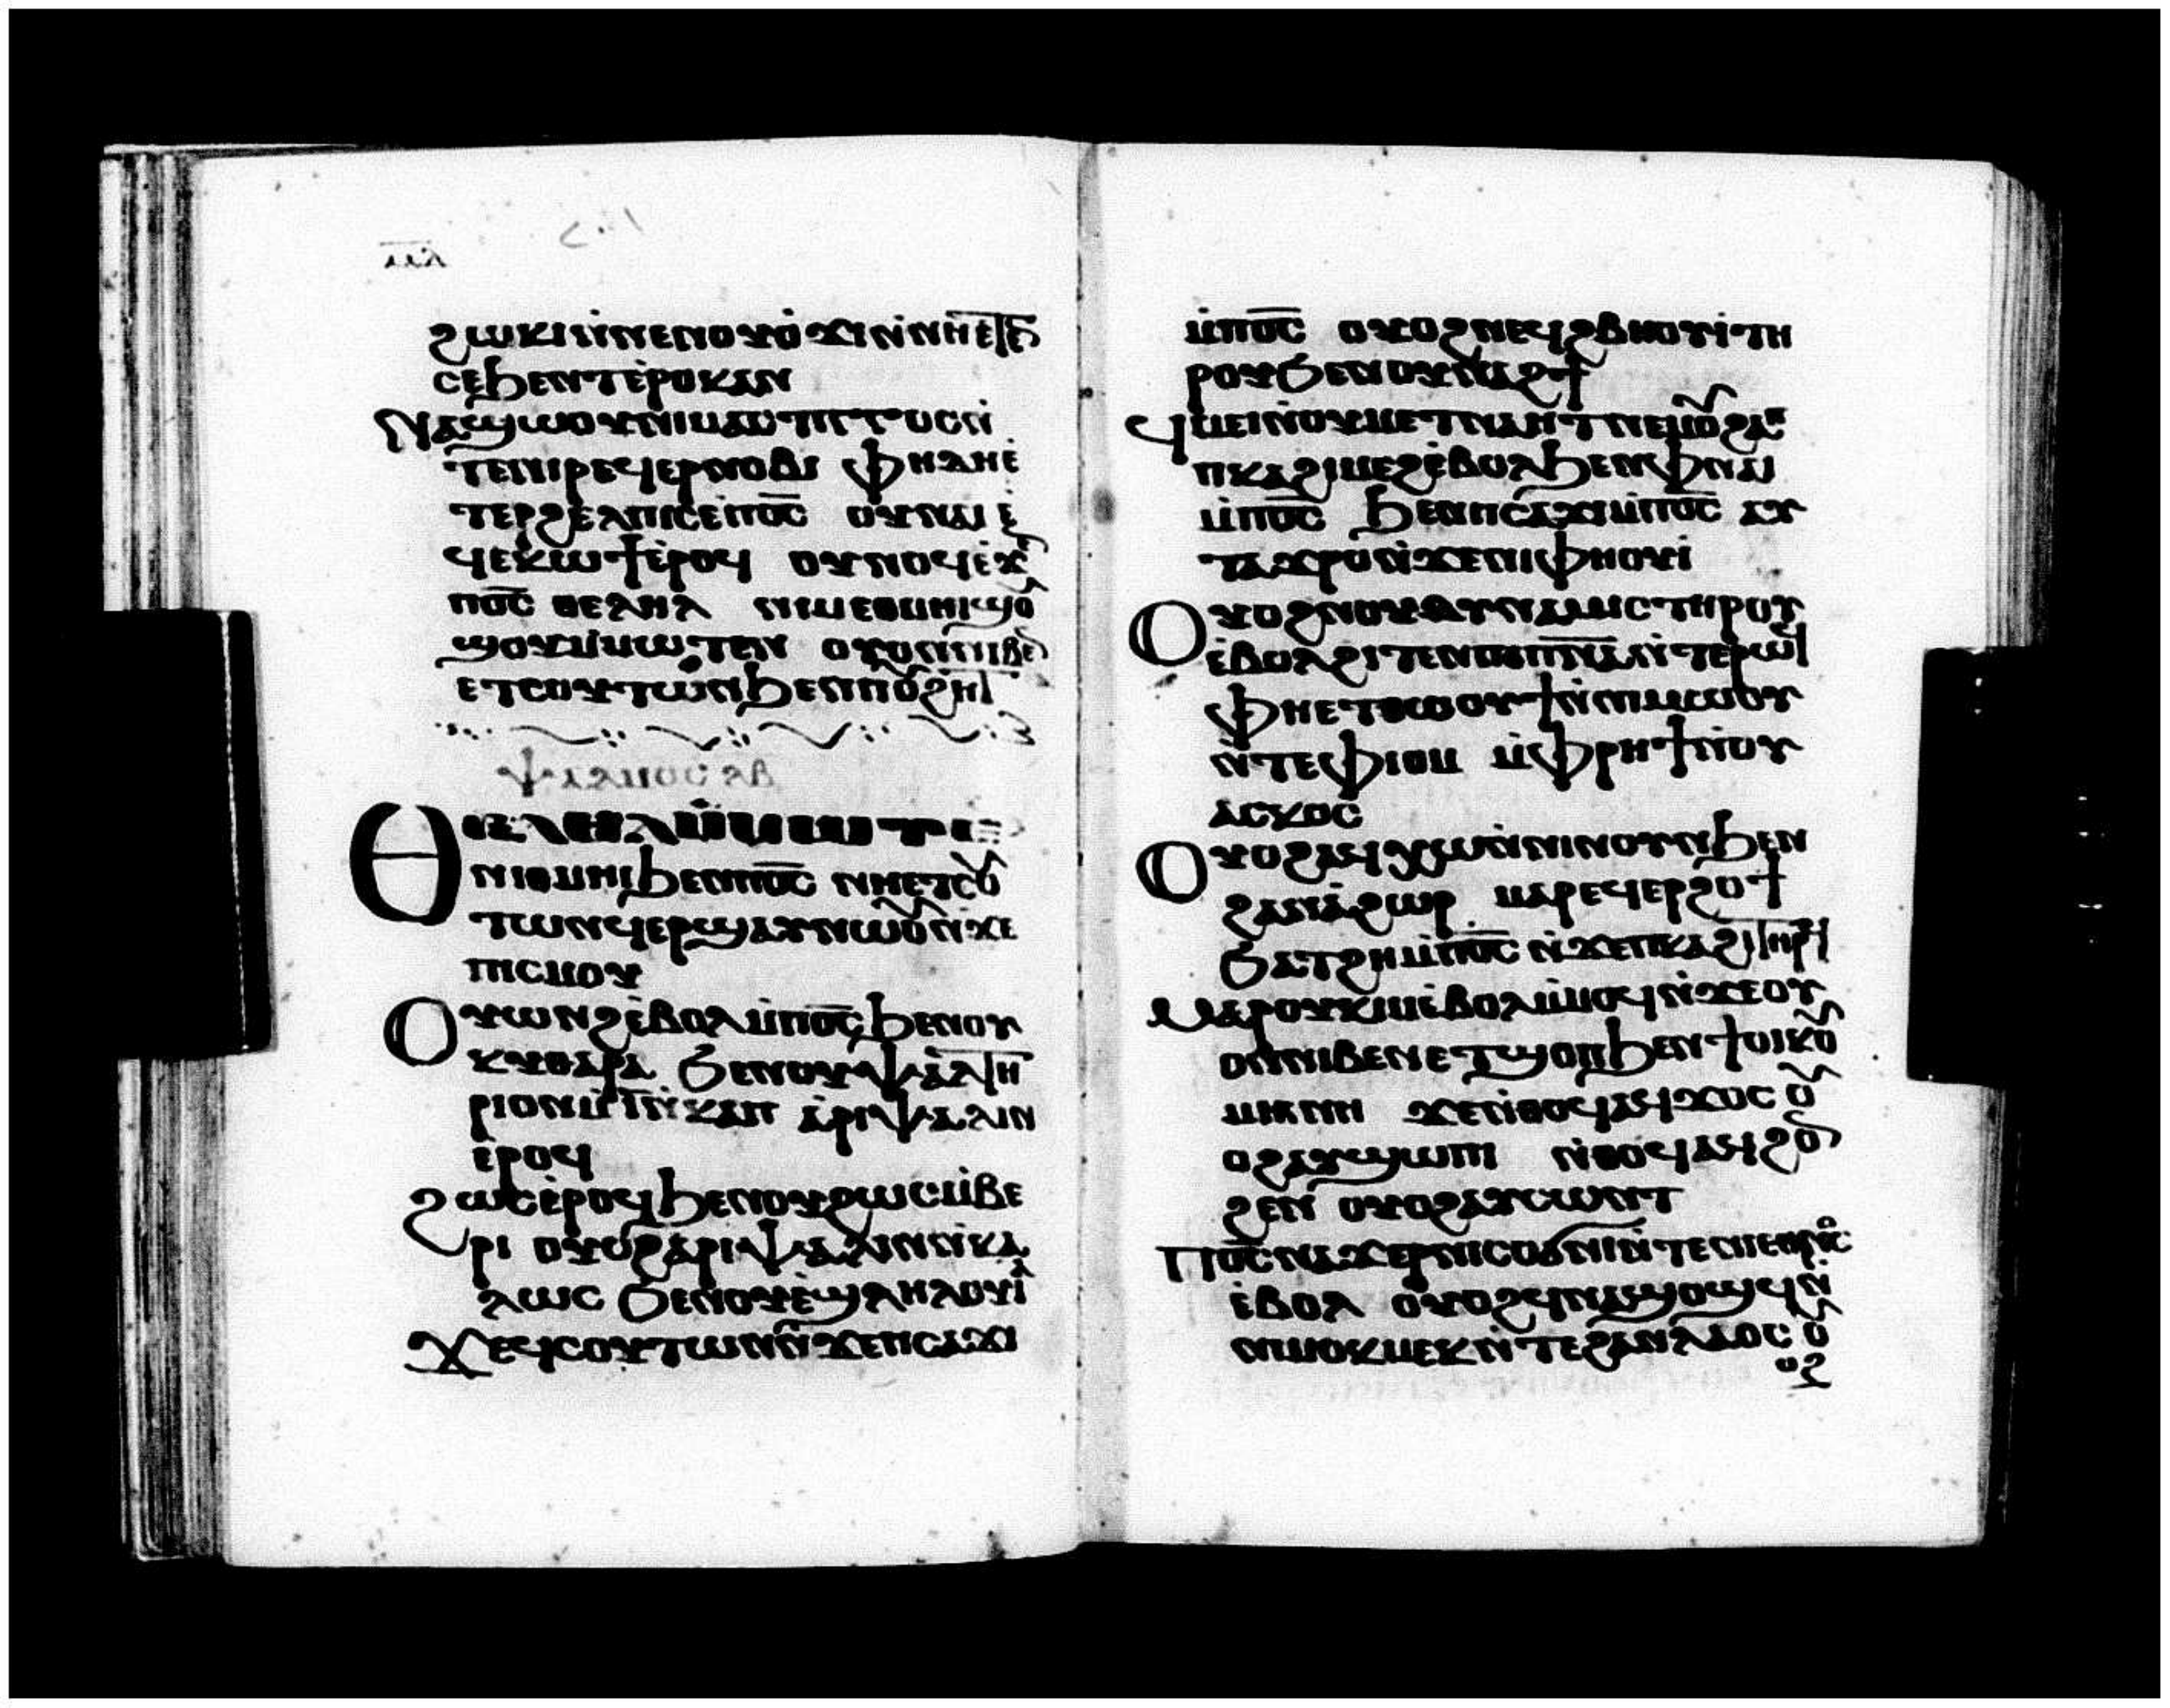 ϩⲱⲕⲓ ⲛ̀ⲛⲉⲛⲟⲩⲟ̀ϫⲓ ⲛ̀ⲛⲏⲉⲧⲉ
ⲥⲉϧⲉⲛⲧⲉϥⲟⲩⲁⲛ
ⲛⲁϣⲱⲟⲩ ⲛⲓⲙⲁⲥⲧⲓⲅⲅⲟⲥ ⲛ̀
ⲧⲉⲛⲓⲣⲉϥⲉⲣⲛⲟⲃⲓ ⲫⲏⲇⲉ ⲉ
ⲧⲉⲣϩⲉⲗⲡⲓⲥ ⲉ̀ⲡⲟ̅ⲥ̅ ⲟⲩⲛⲁⲓ ⲉ̀
ϥⲉⲕⲱϯ ⲉ̀ⲣⲟϥ ⲟⲩⲛⲟϥ ⲉ̀ϫ
ⲡⲟ̅ⲥ̅ ⲑⲉⲗⲏⲗ ⲛⲓⲑⲙⲏⲓ ϣⲟ
ϣⲟⲩ ⲙ̀ⲙⲱⲧⲉⲛ ⲟⲩⲟⲛ ⲛⲓⲃⲉ
ⲉⲧⲥⲟⲩⲧⲱⲛ ϧⲉⲛⲡⲟⲩϩⲏⲧ
ⲑⲉⲗⲏⲗ ⲙ̀ⲙⲱⲧⲉ
ⲛⲓⲑⲙⲏⲓ ϧⲉⲛⲡⲟ̅ⲥ̅ ⲛⲏⲉⲧⲥⲟⲩ
ⲧⲱⲛ ϥⲉⲣϣⲁⲩ ⲛⲱⲟⲩ ⲛ̀ϫⲉ
ⲡⲓⲥⲙⲟⲩ
ⲟⲩⲱⲛϩ ⲉ̀ⲃⲟⲗ ⲙ̀ⲡⲟ̅ⲥ̅ ϧⲉⲛⲟⲩ
ⲕⲩⲑⲁⲣⲁ ϧⲉⲛⲟⲩⲯⲁⲗⲧⲏ
ⲣⲓⲟⲛ ⲙ̀ⲙⲏⲧ ⲛ̀ⲕⲁⲡ ⲁ̀ⲣⲓⲯⲁⲗⲓⲛ
ⲉ̀ⲣⲟϥ
ϩⲱⲥ ⲉ̀ⲣⲟϥ ϧⲉⲛⲟⲩϩⲱⲥ ⲙ̀ⲃⲉ
ⲣⲓ ⲟⲩⲟϩ ⲁⲣⲓⲯⲁⲗⲓⲛ ⲛ̀ⲕⲁ
ⲗⲱⲥ ϧⲉⲛⲟⲩⲉ̀ϣⲗⲏⲗⲟⲩⲓ̀
ϫⲉ ϥⲥⲟⲩⲧⲱⲛ ⲛ̀ϫⲉⲡⲥⲁϫⲓ
ⲙ̀ⲡⲟ̅ⲥ̅ ⲟⲩⲟϩ ⲛⲉϥϩⲃⲏⲟⲩⲓ̀ ⲧⲏ
ⲣⲟⲩ ϧⲉⲛⲟⲩⲛⲁϩϯ
ϥⲙⲉⲓ ⲛ̀ⲟⲩⲙⲉⲧⲛⲁⲏⲧ ⲛⲉⲙⲟⲩϩⲁⲡ
ⲡⲕⲁϩⲓ ⲙⲉϩ ⲉ̀ⲃⲟⲗ ϧⲉⲛⲫⲛⲁⲓ
ⲙ̀ⲡⲟ̅ⲥ̅ ϧⲉⲛⲡⲥⲁϫⲓ ⲙ̀ⲡⲟ̅ⲥ̅ ⲁⲩ
ⲧⲁϫⲣⲟ ⲛ̀ϫⲉⲛⲓⲫⲏⲟⲩⲓ̀
ⲟⲩⲟϩ ⲛⲟⲩⲇⲩⲛⲁⲙⲓⲥ ⲧⲏⲣⲟⲩ
ⲉ̀ⲃⲟⲗϩⲓⲧⲉⲛ ⲡⲓⲡ̅ⲛ̅ⲁ̅ ⲛ̀ⲧⲉⲣⲱϥ
ⲫⲏⲉⲧⲑⲱⲟⲩϯ ⲛ̀ⲛⲓⲙⲱⲟⲩ
ⲛ̀ⲧⲉⲫⲓⲟⲙ ⲙ̀ⲫⲣⲏϯ ⲛ̀ⲟⲩ
ⲁⲥⲕⲟⲥ
ⲟⲩⲟϩ ⲁϥⲭⲱ ⲛ̀ⲛⲓⲛⲟⲩⲛ ϧⲉⲛ
ϩⲁⲛⲁ̀ϩⲱⲣ ⲙⲁⲣⲉϥⲉⲣϩⲟϯ
ϧⲁⲧϩⲏ ⲙ̀ⲡⲟ̅ⲥ̅ ⲛ̀ϫⲉⲡⲕⲁϩⲓ ⲧⲏⲣϥ
ⲙⲁⲣⲟⲩⲕⲓⲙ ⲉ̀ⲃⲟⲗ ⲙ̀ⲙⲟϥ ⲛ̀ϫⲉⲟⲩ
ⲟⲛ ⲛⲓⲃⲉⲛ ⲉⲧϣⲟⲡ ϧⲉⲛϯⲟⲓⲕⲟⲩ
ⲙⲉⲛⲏ ϫⲉ ⲛ̀ⲑⲟϥ ⲁϥϫⲟⲥ ⲟⲩ
ⲟϩ ⲁⲩϣⲱⲡⲓ ⲛ̀ⲑⲟϥ ⲁϥϩⲟⲛ
ϩⲉⲛ ⲟⲩⲟϩ ⲁⲩⲥⲱⲛⲧ
ⲡⲟ̅ⲥ̅ ⲛⲁϫⲉⲣ ⲛⲓⲥⲟϭⲛⲓ ⲛ̀ⲧⲉⲛⲓⲉⲑⲛⲟⲥ
ⲉ̀ⲃⲟⲗ ⲟⲩⲟϩ ϥⲛⲁϣⲟϣϥ ⲛ̀
ⲛⲓⲙⲟⲕⲙⲉⲕ ⲛ̀ⲧⲉϩⲁⲛⲗⲁⲟⲥ ⲟⲩ
ⲟϩ